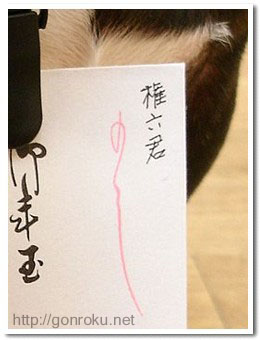 権六君
のし
御年玉
http://gonroku.net